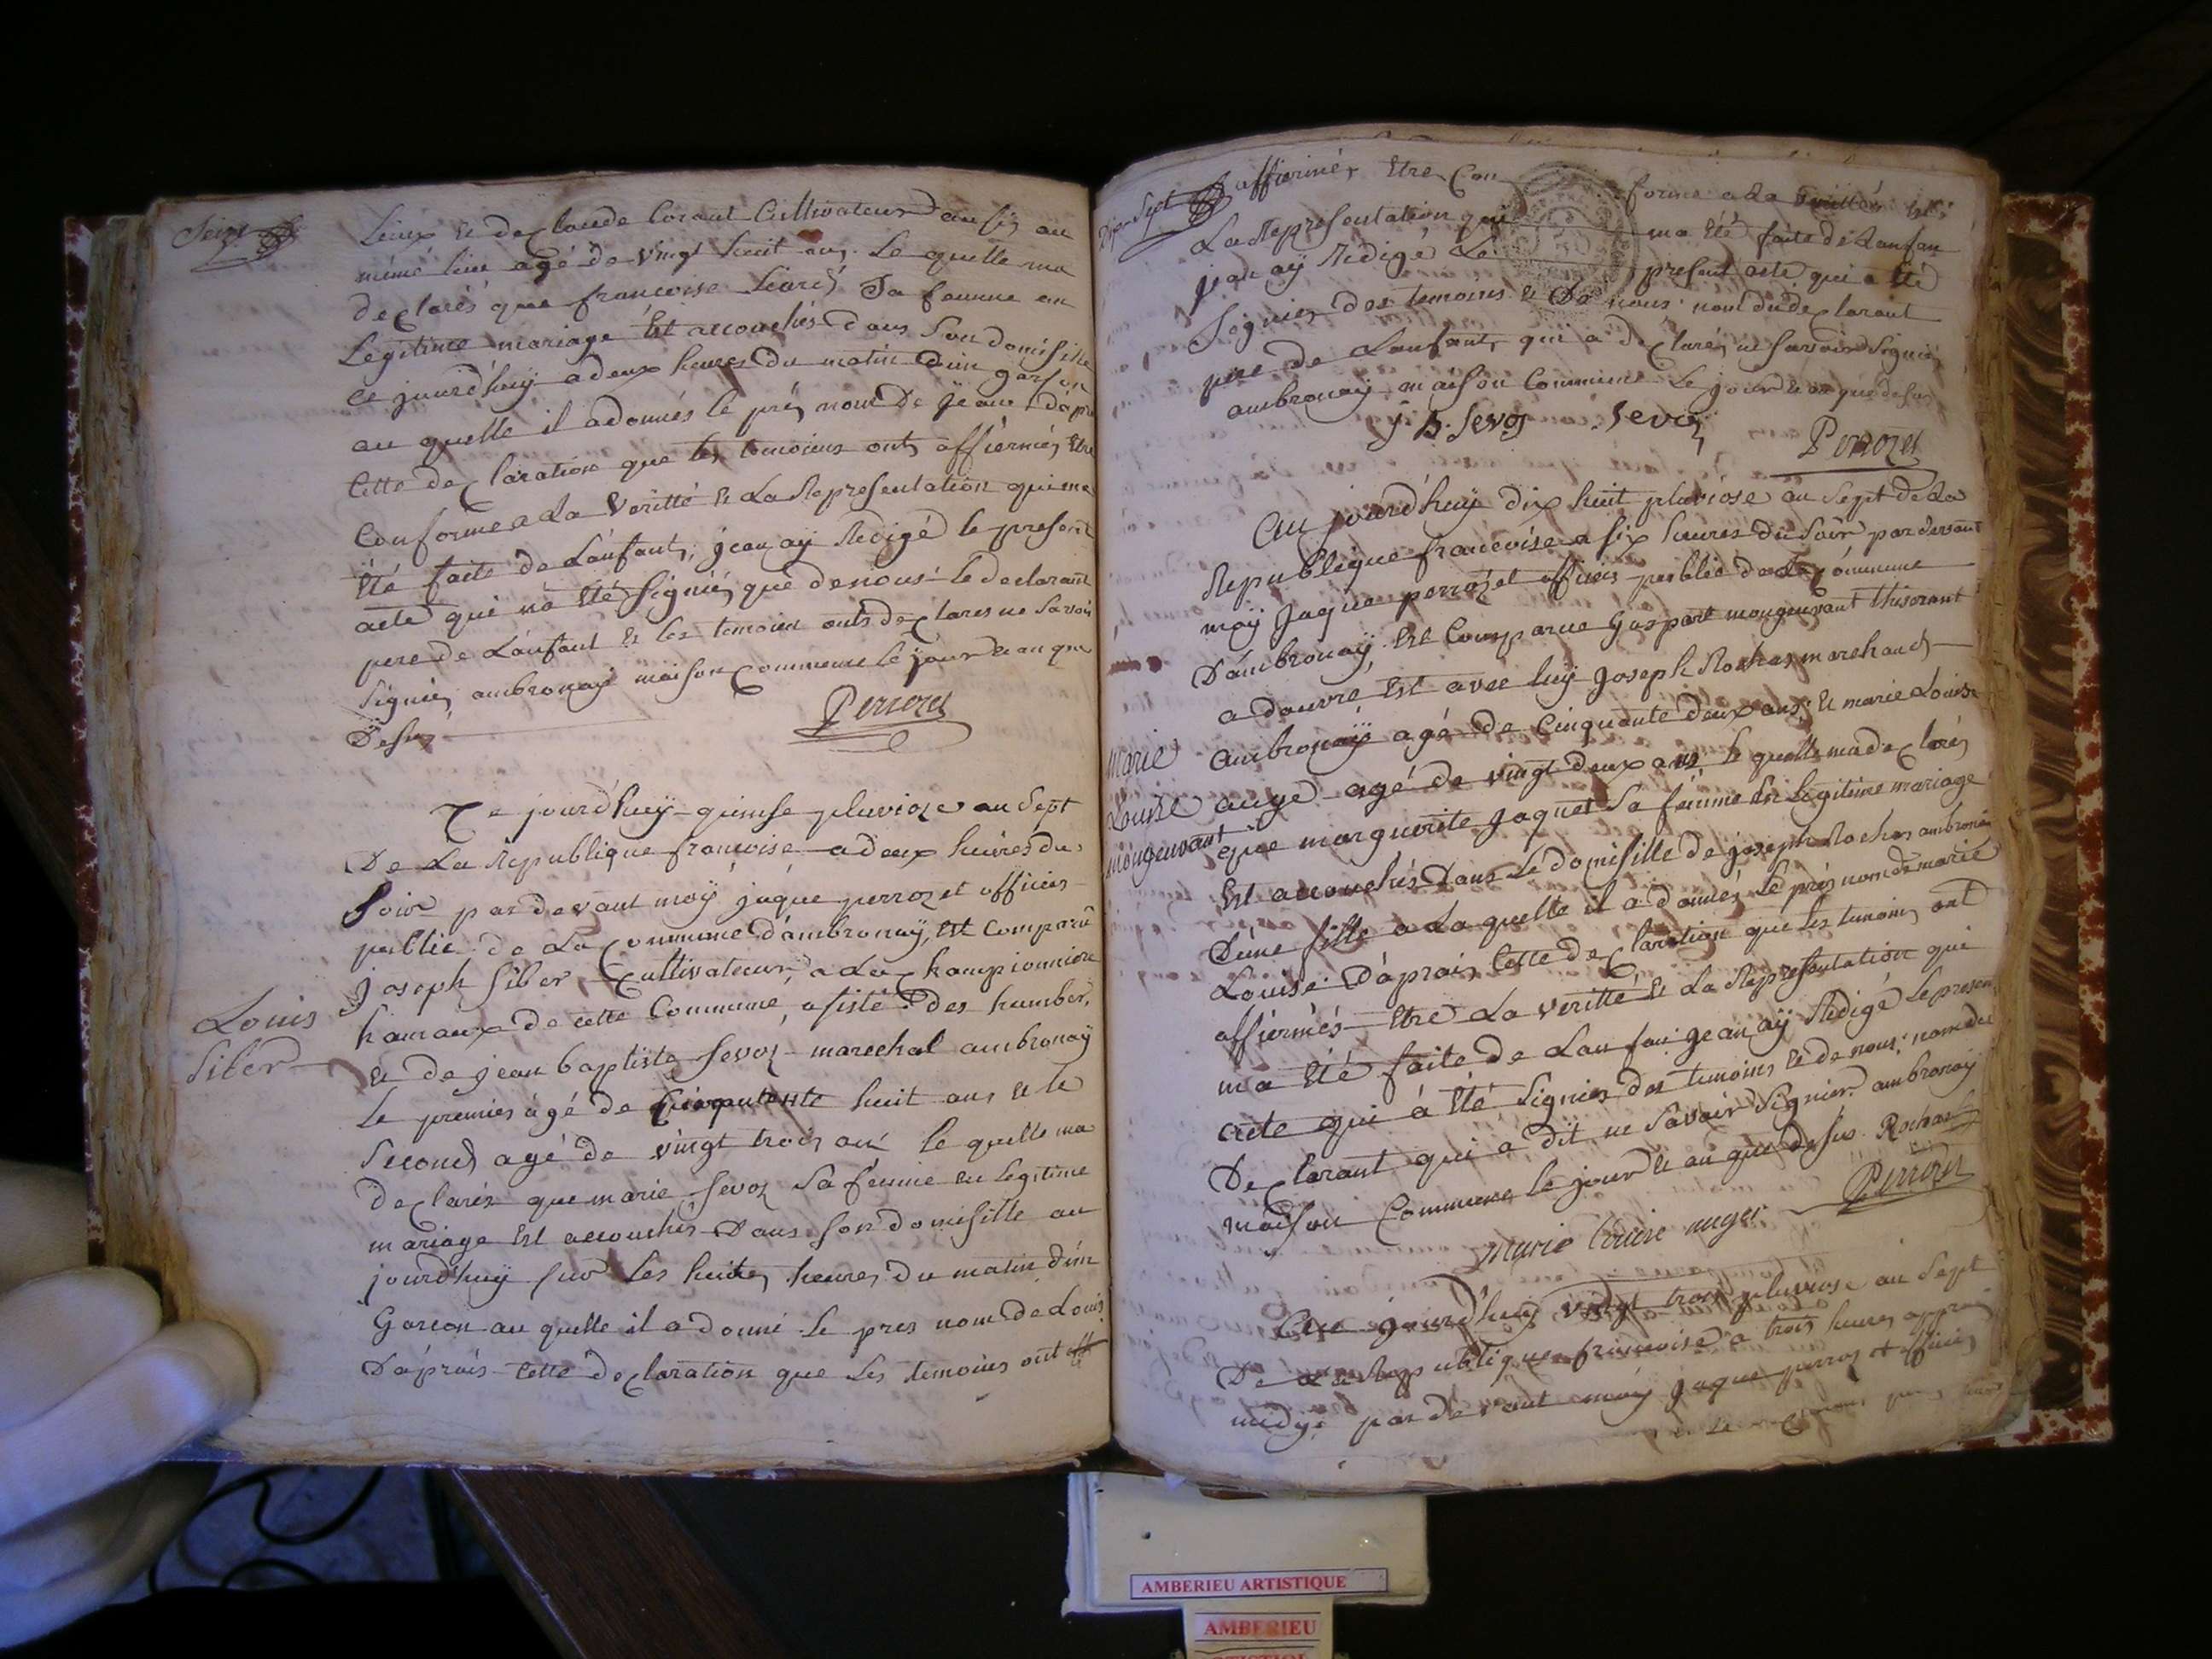 Seize
Lieux et de Claude Corant Cultivateur au
même lieu agé de vingt huit ans. Le quelle ma
declarés que francoise Sa femme en
Legitime mariage Est accouchés dans Son domisille
ce jourd'huÿ a deux heures du matin d'un garson
au quelle il adonnés le prés nom De Jean d'apr
Cette declaration que les temoins onts affiermés Etre
Conforme a La Veritté & La Representation qui ma
Eté faite de L'anfant, jean aÿ Redigé le present
acte qui na Eté Signiés que de nous Le declarant
pere de L'anfant & les temoins onts declarés ne Savoir
Signiés ambronaÿ maison Commune le jour & an que
Desus
Perrozet
Ce jourd'huÿ quinse pluvioze an Sept
De La Republique francoise a deux heures du
Soir par devant moÿ jaque perrozet officies
public de La Commune d'ambronaÿ, Est Comparû
Joseph Siber, Cultivateur a La Championniere
Louis
hamaux de cette Commune, asisté des humber,
Siber
& de jean baptiste Sevoz marechal ambronaÿ
Le premies agé de Cinquante huit ans & le
Second agé de vingt trois ans le quelle ma
Declarés que marie Sevoz Sa femme en Legitime
mariage Est accouchés Dans Son domisille au
jourd'huÿ sur les huites heures du matin d'un
Garcon au quelle il a donné le pres nom de Louis
D'aprais Cette declaration que Les temoins ont aff
Dix Sept
affierinés Etre Con forme a La veritté &
La Representation qui ma Eté faite de Lanfan
jean aÿ Redigé Le present acte qui a Eté
Signies des temoins & De nous, non du declarant
pere de Lanfant, qui a declarés ne Savoir Signiés
ambronaÿ maison Commune Le jour & an que desus
j B. Sevoz Sevoz
Perrozet
Au jourd'huÿ dix huit pluviose an Sept de La
Republique francoise a six heures du Soir par devant
moÿ Jaque perrozet officies public de La Commune
D'ambronaÿ, Est Comparue Gaspart mongenvant thiserant
a douvre Est avec luÿ Joseph Rochas marchand
Marie
ambronaÿ agé de Cinquante deux ans, & marie Louise
Louise
auge agé de vingt deux ans le quelle ma declarés
mongenvant
que marguerite Jaquet Sa femme En Legitime mariage
Est accouchés Dans Le domisille de joseph Rochas ambronaÿ
D'une fille a La quelle il a donnés Le prés nom de marie
Louise. D'aprais Cette declaration que les temoins ont
affiermés Etre La veritté & La Representation qui
ma Eté faite de Lanfan jean aÿ Redigé Le presen
acte qui à Eté Signies des temoins & de nous, non du
Declarant qui a dit ne Savoir Signier. ambronaÿ
maison Commune le jour & an que desus. Rochas
Marie louise auger
Perrozet
Ce jourd'huÿ vingt trois pluviose an Sept
De La Republique francoise a trois heures appres
midÿ par devant moÿ Jaque perrozet officies
AMBERIEU ARTISTIQUE
AMBERIEU
ARTISTIQUE